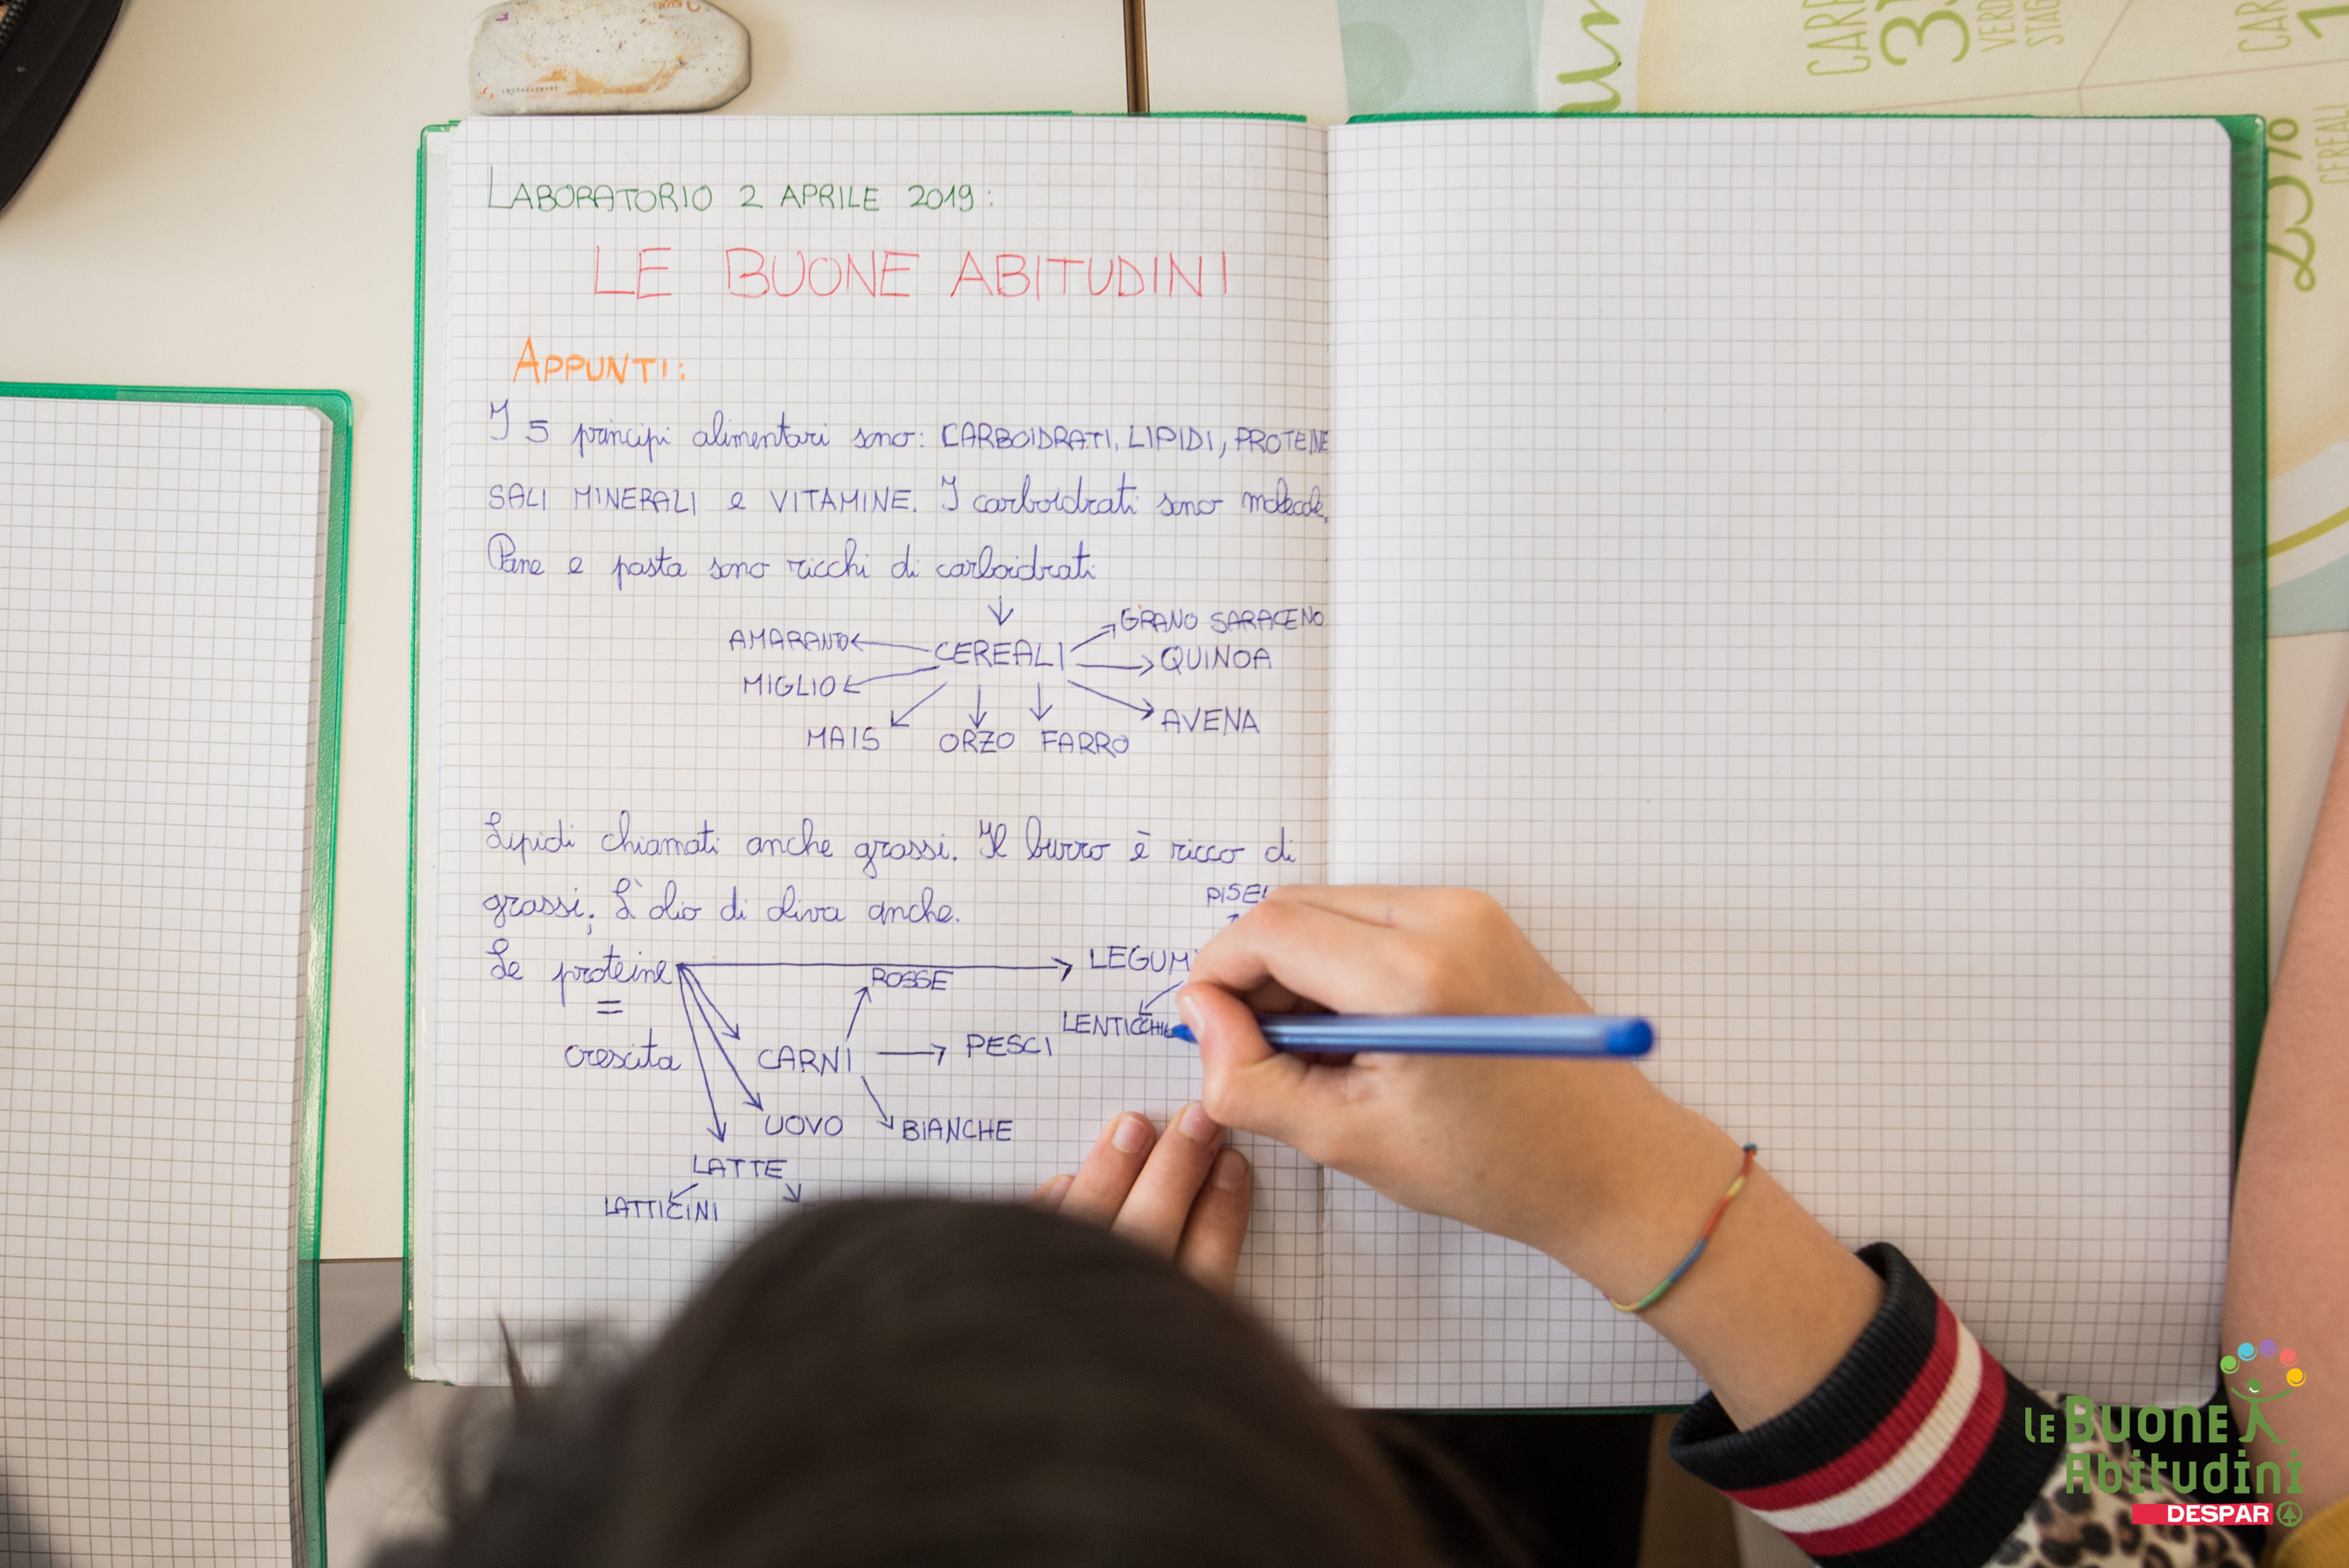 LABORATORIO 2 APRILE 2019:
LE BUONE ABITUDINI
APPUNTI:
I 5 principi alimentari sono: CARBOIDRATI, LIPIDI, PROTEINE
SALI MINERALI e VITAMINE. I carboidrati sono molecole.
Pane e pasta sono ricchi di carboidrati
GRANO SARACENO
AMARANTO CEREALI QUINOA
MIGLIO
AVENA
MAIS ORZO FARRO
Lipidi chiamati anche grassi. Il burro è ricco di
grassi; L'olio di oliva anche.
PISEL
Le proteine LEGUMI
ROSSE
=
LENTICCHIE
crescita CARNI PESCI
UOVO BIANCHE
LATTE
LATTICINI
un
CARB
35
VERD
STAG
CAR
1
25%
CEREALI
LE BUONE
Abitudini
DESPAR